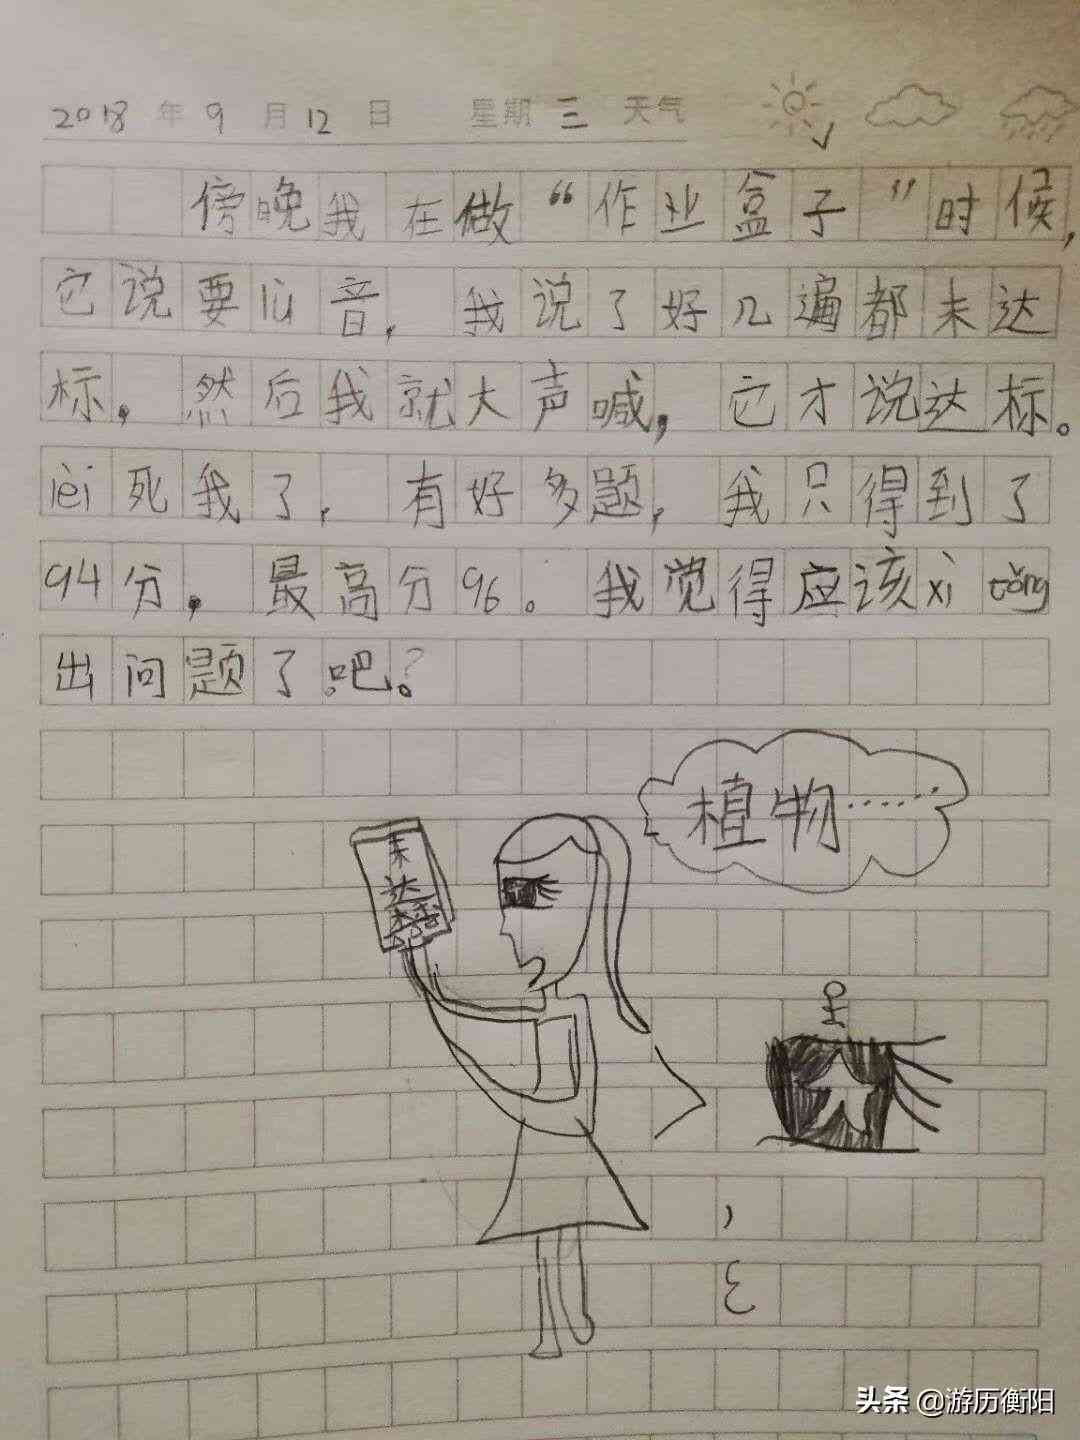 2018年9月12日 星期三 天气
傍晚我在做“作业盒子”时候,
它说要lù音,我说了好几遍都未达
标,然后我就大声喊,它才说达标。
lèi死我了,有好多题,我只得到了
94分,最高分96。我觉得应该xì tǒng
出问题了吧?
植物……
未
达
标
头条 @游历衡阳